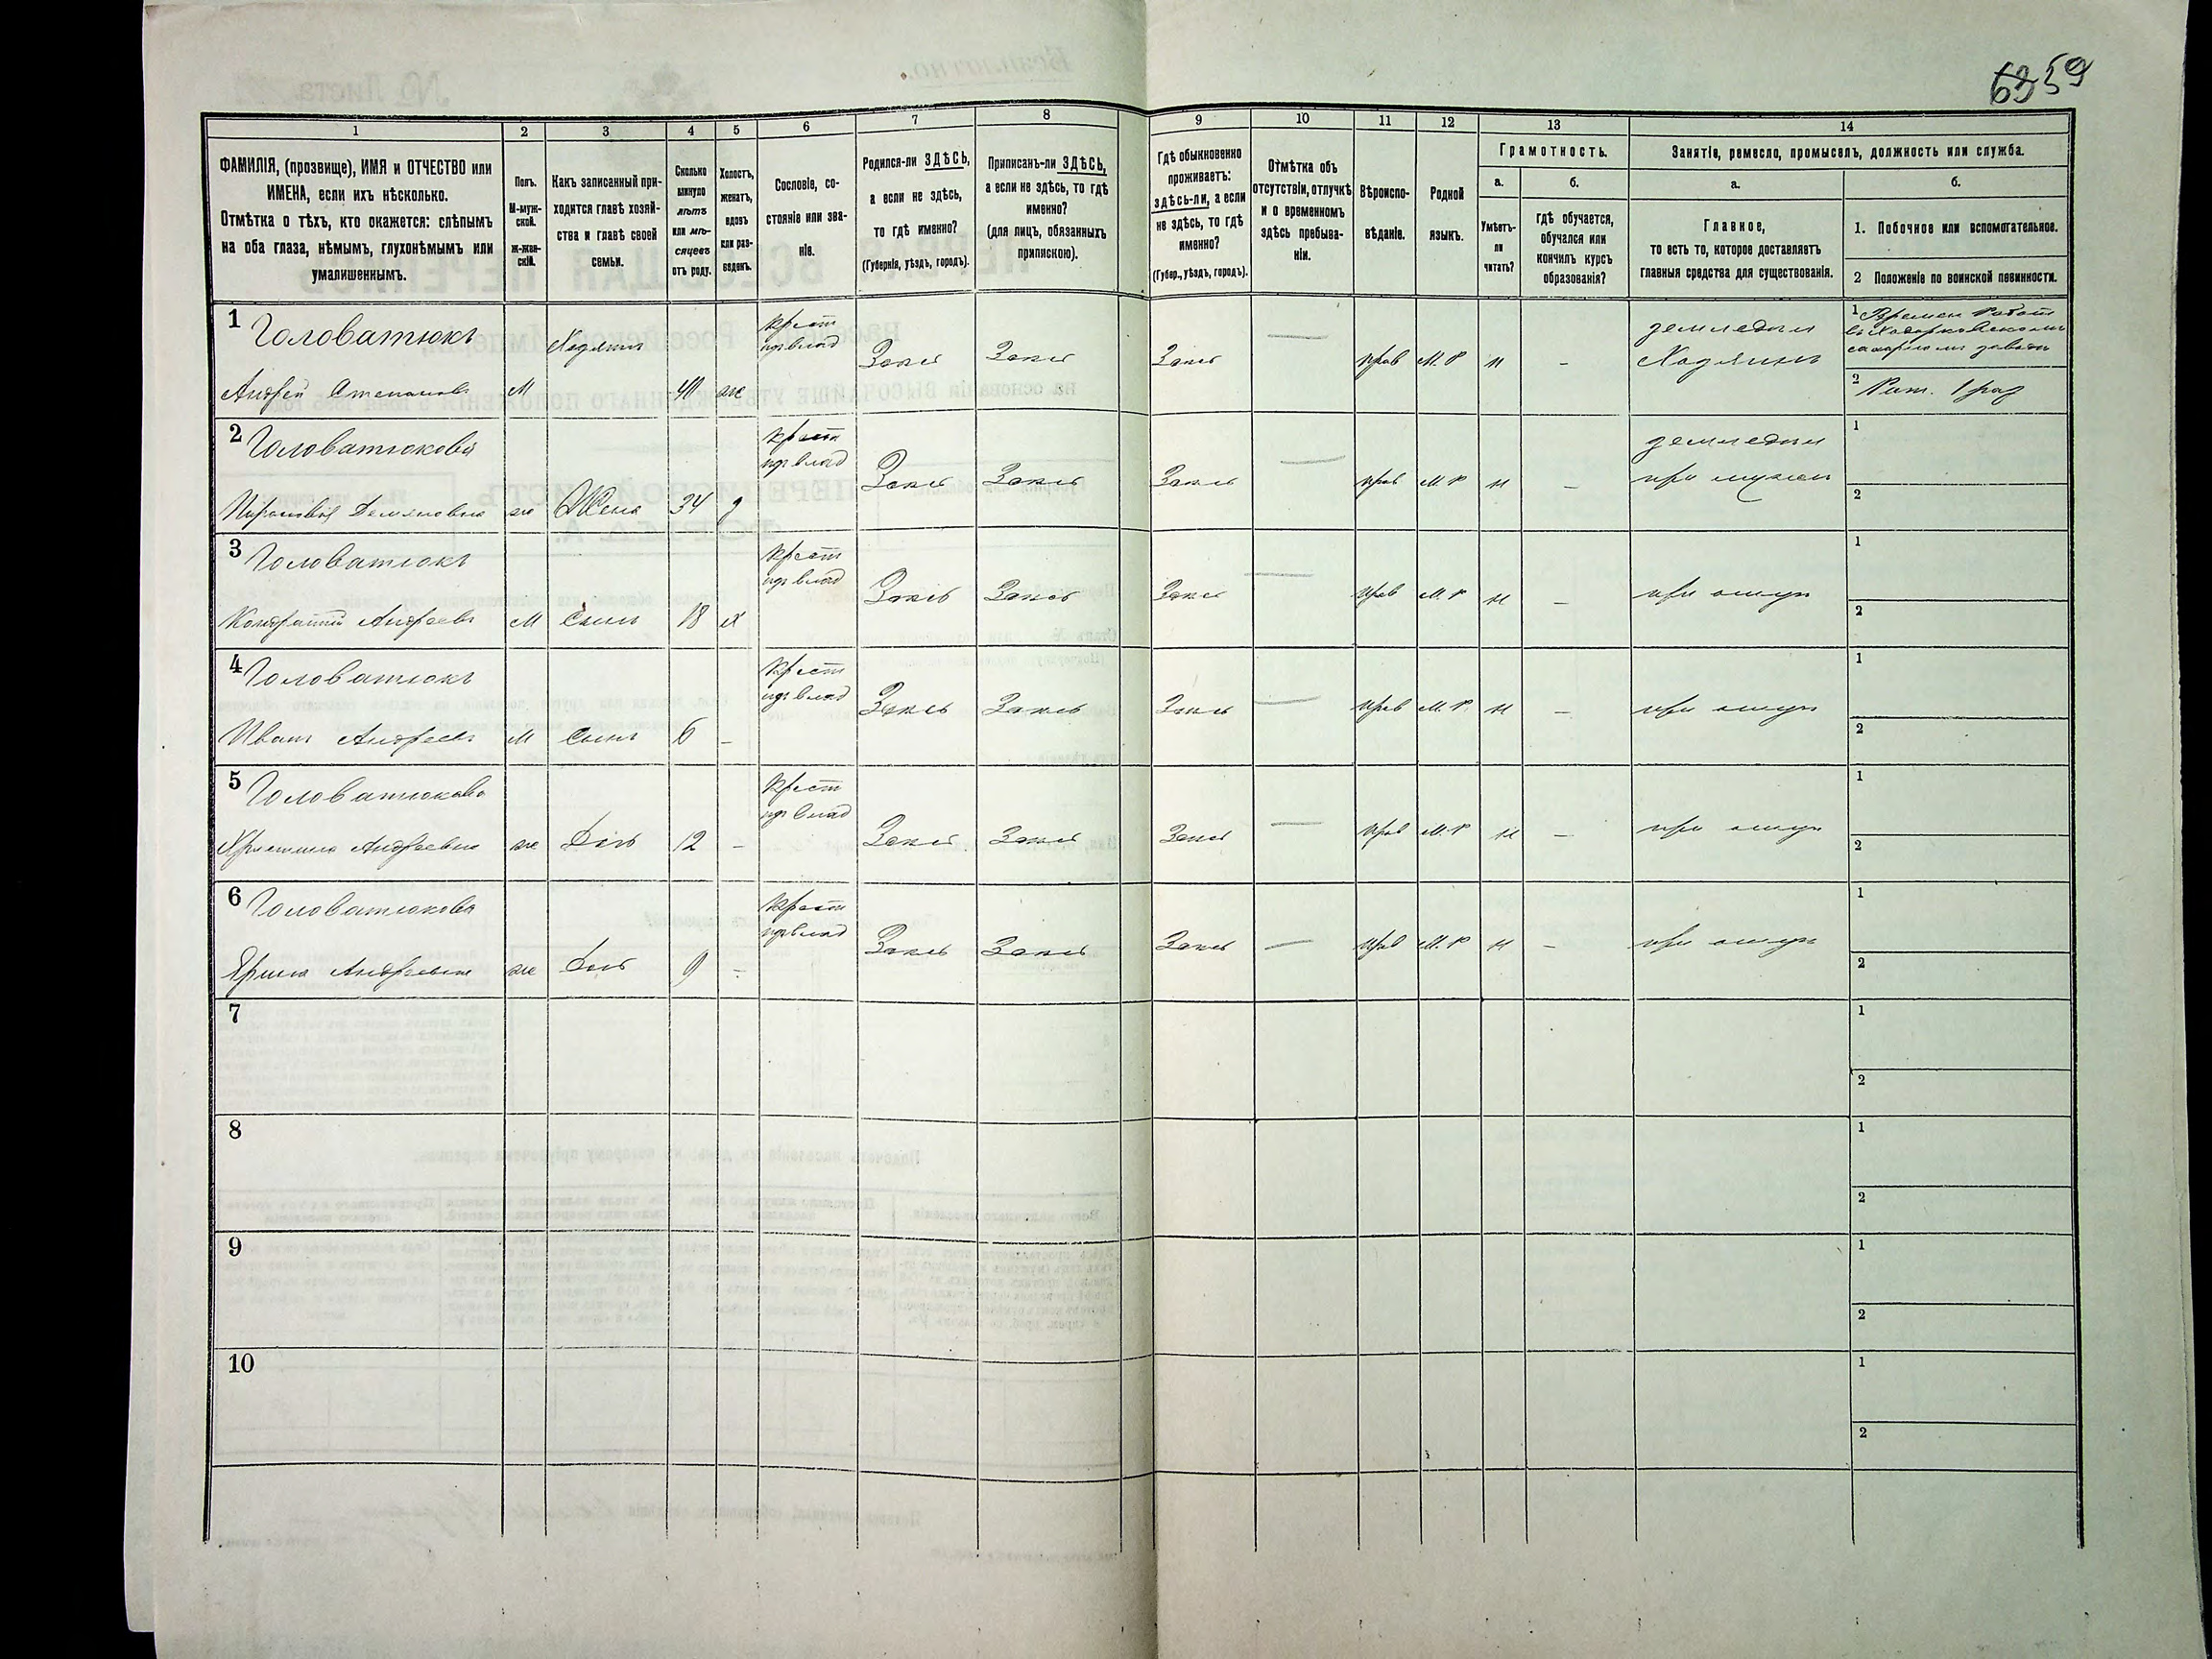 6359
1 2 3 4 5 6 7 8 9 10 11 12 13 14
ФАМИЛІЯ, (прозвище), ИМЯ и ОТЧЕСТВО или
ИМЕНА, если ихъ нѣсколько.
Отмѣтка о тѣхъ, кто окажется: слѣпымъ
на оба глаза, нѣмымъ, глухонѣмымъ или
умалишеннымъ.
Полъ.
М-муж-
ской.
ж-жен-
скій.
Какъ записанный при-
ходится главѣ хозяй-
ства и главѣ своей
семьи.
Сколько
минуло
лѣтъ
или мѣ-
сяцевъ
отъ роду.
Холостъ,
женатъ,
вдовъ
или раз-
веденъ.
Сословіе, со-
стояніе или зва-
ніе.
Родился-ли ЗДѢСЬ,
а если не здѣсь,
то гдѣ именно?
(Губернія, уѣздъ, городъ).
Приписанъ-ли ЗДѢСЬ,
а если не здѣсь, то гдѣ
именно?
(для лицъ, обязанныхъ
припискою).
Гдѣ обыкновенно
проживаетъ:
здѣсь-ли, а если
не здѣсь, то гдѣ
именно?
(Губер., уѣздъ, городъ).
Отмѣтка объ
отсутствіи, отлучкѣ
и о временномъ
здѣсь пребыва-
ніи.
Вѣроиспо-
вѣданіе.
Родной
языкъ.
Грамотность.
а.
Умѣетъ-
ли
читать?
б.
гдѣ обучается,
обучался или
кончилъ курсъ
образованія?
Занятіе, ремесло, промыселъ, должность или служба.
а.
Главное,
то есть то, которое доставляетъ
главныя средства для существованія.
б.
1. Побочное или вспомогательное.
2 Положеніе по воинской повинности.
1 Головатюкъ
Андрей Степановъ М Хозяинъ 40 ж
крест
изъ влад
Здѣсь Здѣсь Здѣсь — прав М.Р н –
земледѣл
Хозяинъ
1 Времен Работ
въ Ходорковскомъ
сахарномъ заводѣ
2 Рат. 1 раз
2 Головатюкова
Демьяновна ж Жена 34 з
крест
изъ влад
Здѣсь Здѣсь Здѣсь — прав М.Р н –
земледѣл
при мужѣ
1
2
3 Головатюкъ
Кондратій Андреевъ М Сынъ 18 х
крест
изъ влад
Здѣсь Здѣсь Здѣсь — прав М.Р н –
при отцѣ
1
2
4 Головатюкъ
Иванъ Андреевъ М Сынъ 6 –
крест
изъ влад
Здѣсь Здѣсь Здѣсь — прав М.Р. н –
при отцѣ
1
2
5 Головатюкова
Христина Андреевна ж Дочь 12 –
крест
изъ влад
Здѣсь Здѣсь Здѣсь — прав М.Р н –
при отцѣ
1
2
6 Головатюкова
Ярина Андреевна ж Дочь 9 –
крест
изъ влад
Здѣсь Здѣсь Здѣсь — прав М.Р н –
при отцѣ
1
2
7
1
2
8
1
2
9
1
2
10
1
2